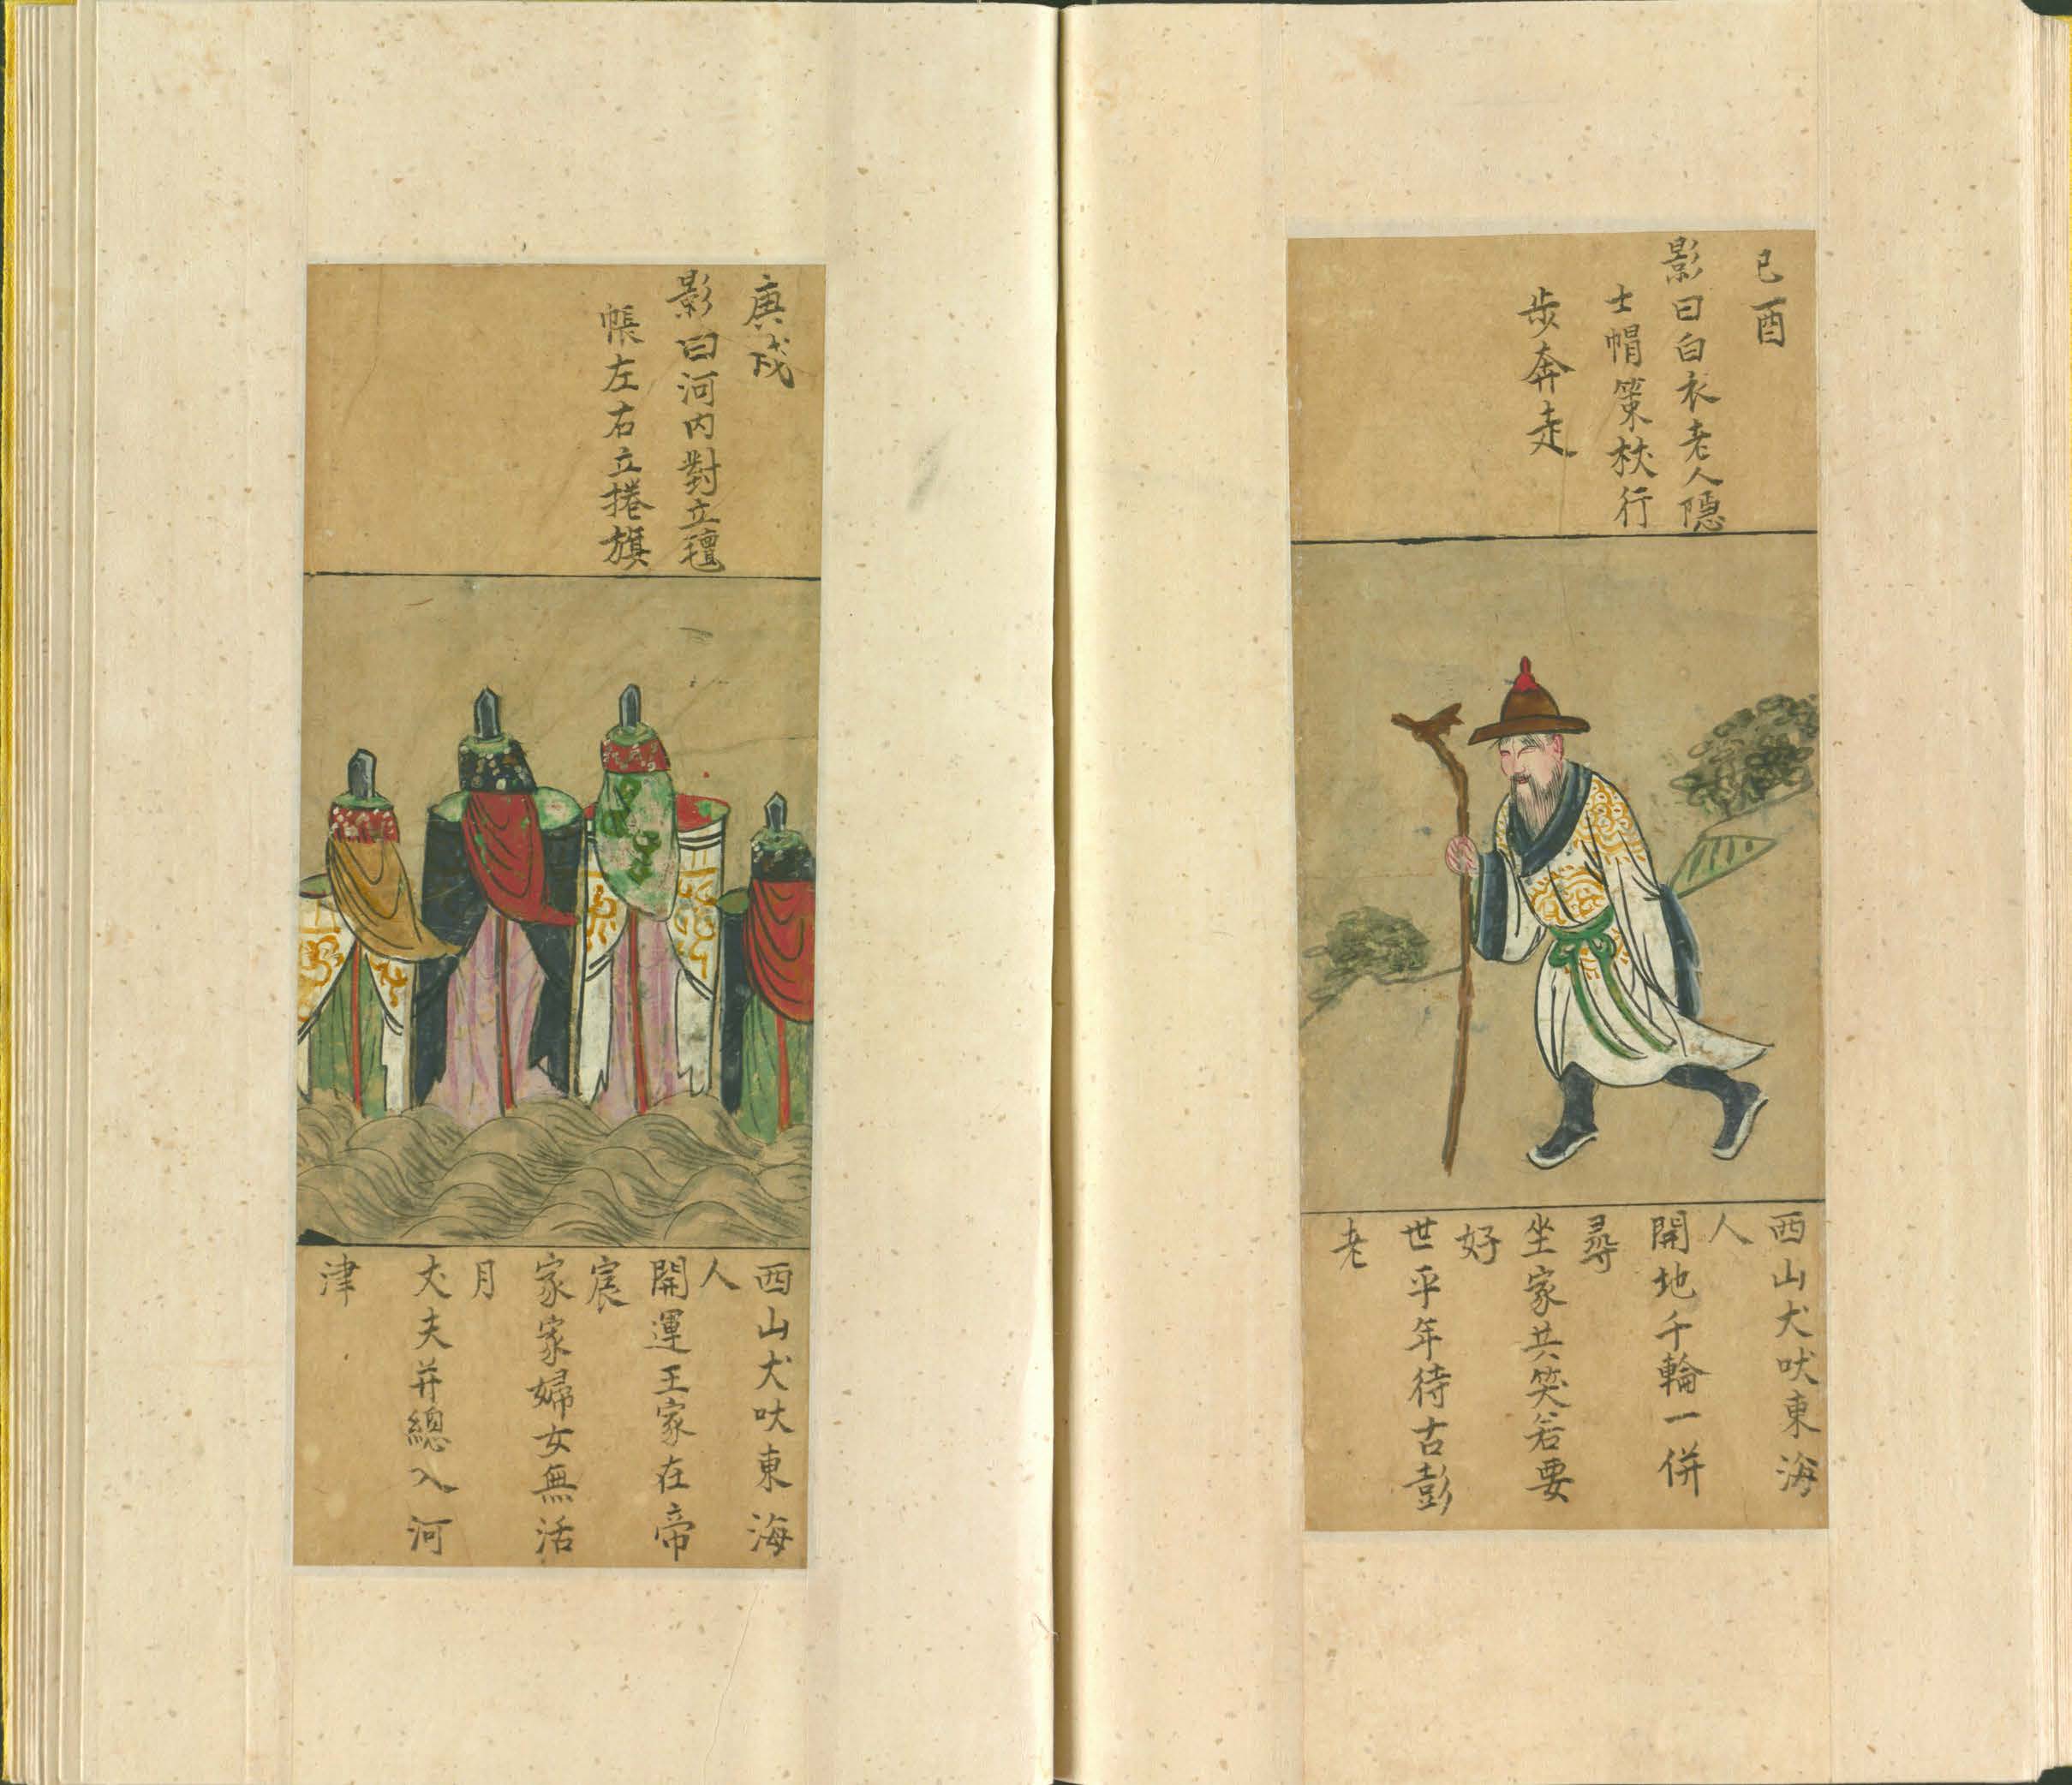 己酉
影曰白衣老人隱
士帽策杖行
步奔走
西山犬吠東海
人
開地千輪一併
尋
坐家共笑若要
好
世乎年待古彭
老
庚戌
影曰河內對立氊
帳左右立捲旗
西山犬吠東海
人
開運王家在帝
宸
家家婦女無活
月
丈夫并總入河
津